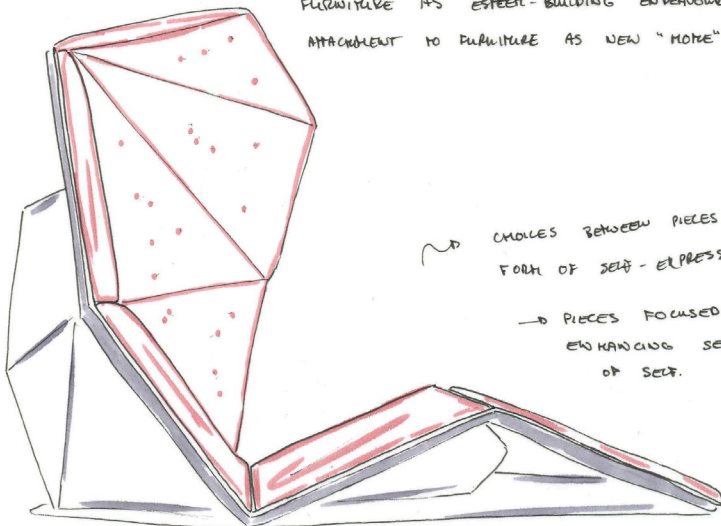 FURNITURE AS ESTEEM-BUILDING ENDEAVOUR
ATTACHMENT TO FURNITURE AS NEW "HOME"
CHOICES BETWEEN PIECES
FORM OF SELF-EXPRESS
→ PIECES FOCUSED
ENHANCING SE
OF SELF.